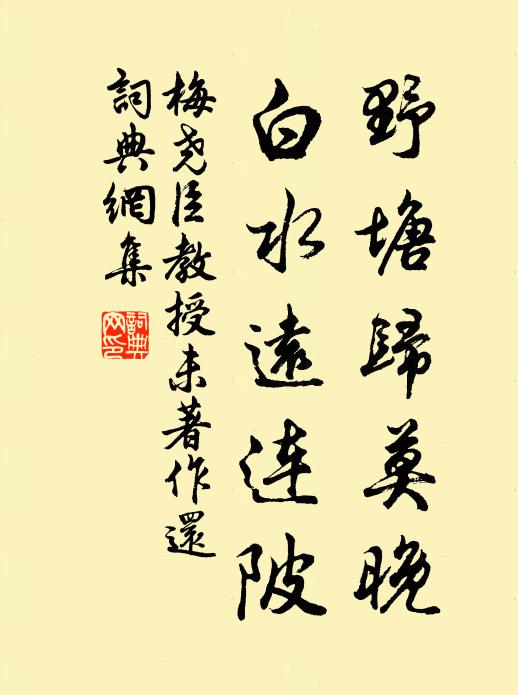 野塘歸莫晚
白水遠連陂
梅尧臣教授未著作還
詞典網集
詞典网印